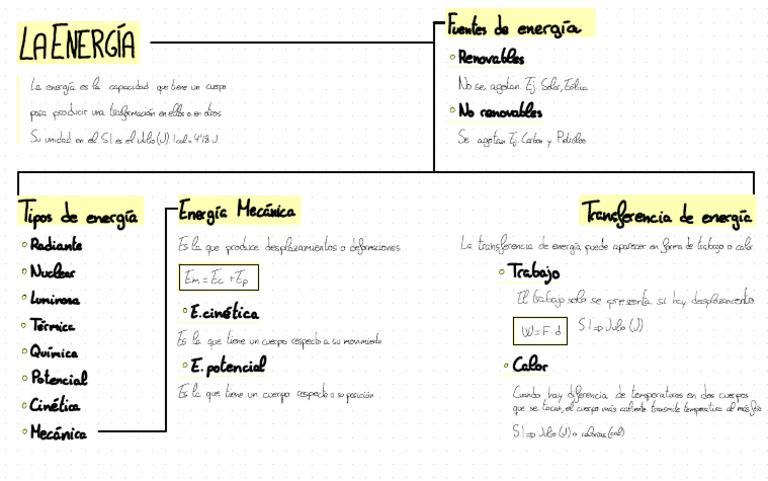 LA ENERGÍA
La energía es la capacidad que tiene un cuerpo
para producir una transformación en ellos o en otros
Su unidad en el SI es el Julio (J). 1 cal = 4'18 J
Fuentes de energía
Renovables
No se agotan. Ej. Solar, Eólica
No renovables
Se agotan Ej. Carbon y Petróleo
Tipos de energía
Radiante
Nuclear
Luminosa
Térmica
Química
Potencial
Cinética
Mecánica
Energía Mecánica
Es la que produce desplazamientos o deformaciones
Em = Ec + Ep
E. cinética
Es la que tiene un cuerpo respecto a su movimiento
E. potencial
Es la que tiene un cuerpo respecto a su posición
Transferencia de energía
La transferencia de energía puede aparecer en forma de trabajo o calor
Trabajo
El trabajo solo se presenta si hay desplazamiento
W = F · d SI ⇒ Julio (J)
Calor
Cuando hay diferencia de temperaturas en dos cuerpos
que se tocan, el cuerpo más caliente transmite temperatura al más frío
SI ⇒ Julio (J) o calorías (cal)